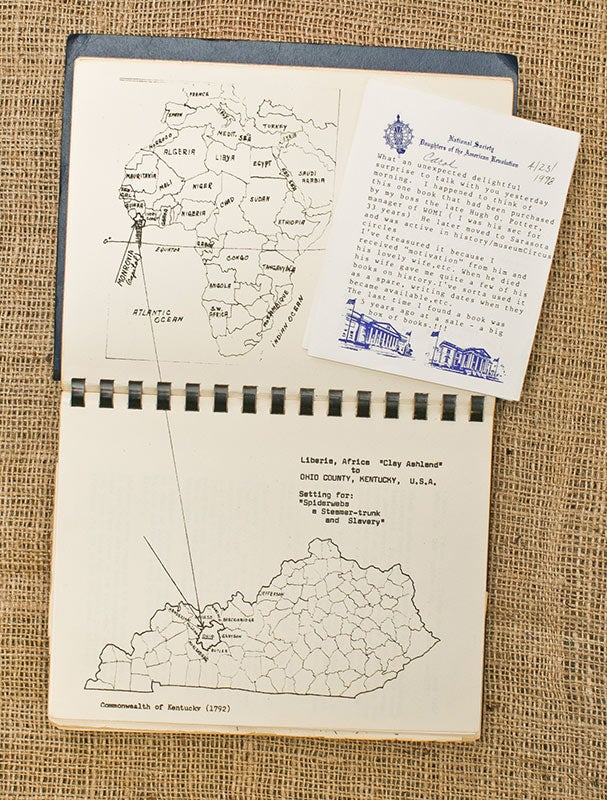 FRANCE
TURKEY
SPAIN
MEDIT. SEA
MOROCCO
ALGERIA
LIBYA
EGYPT
SAUDI
ARABIA
RED SEA
MAURITANIA
MALI
NIGER
CHAD
SUDAN
NIGERIA
ETHIOPIA
GUINEA
0°
EQUATOR
GABON
CONGO
MONROVIA
(Capital)
TANGANYIKA
ANGOLA
S.W.
AFRICA
MOZAMBIQUE
ATLANTIC
OCEAN
INDIAN OCEAN
National Society
Daughters of the American Revolution
Carol
4/23/
1998
What an unexpected delightful
surprise to talk with you yesterday
morning. I happened to think of
this one book that had been purchased
by my boss the late Hugh O. Potter,
manager of WOMI ( I was his sec for
years) He later moved to Sarasota
and was active in history/museumCircus
circles
I've treasured it because I
received "motivation" from him and
his lovely wife,etc. When he died
his wife gave me quite a few of his
books on history.I've not used it
as a spare, writing dates when they
became available,etc.
The last time I found a book was
years ago at a sale - a big
box of books
Liberia, Africa "Clay Ashland"
to
OHIO COUNTY, KENTUCKY, U.S.A.
Setting for:
"Spiderwebs
a Steamer-trunk
and Slavery"
JEFFERSON
BRECKINRIDGE
OHIO
GRAYSON
BUTLER
Commonwealth of Kentucky (1792)